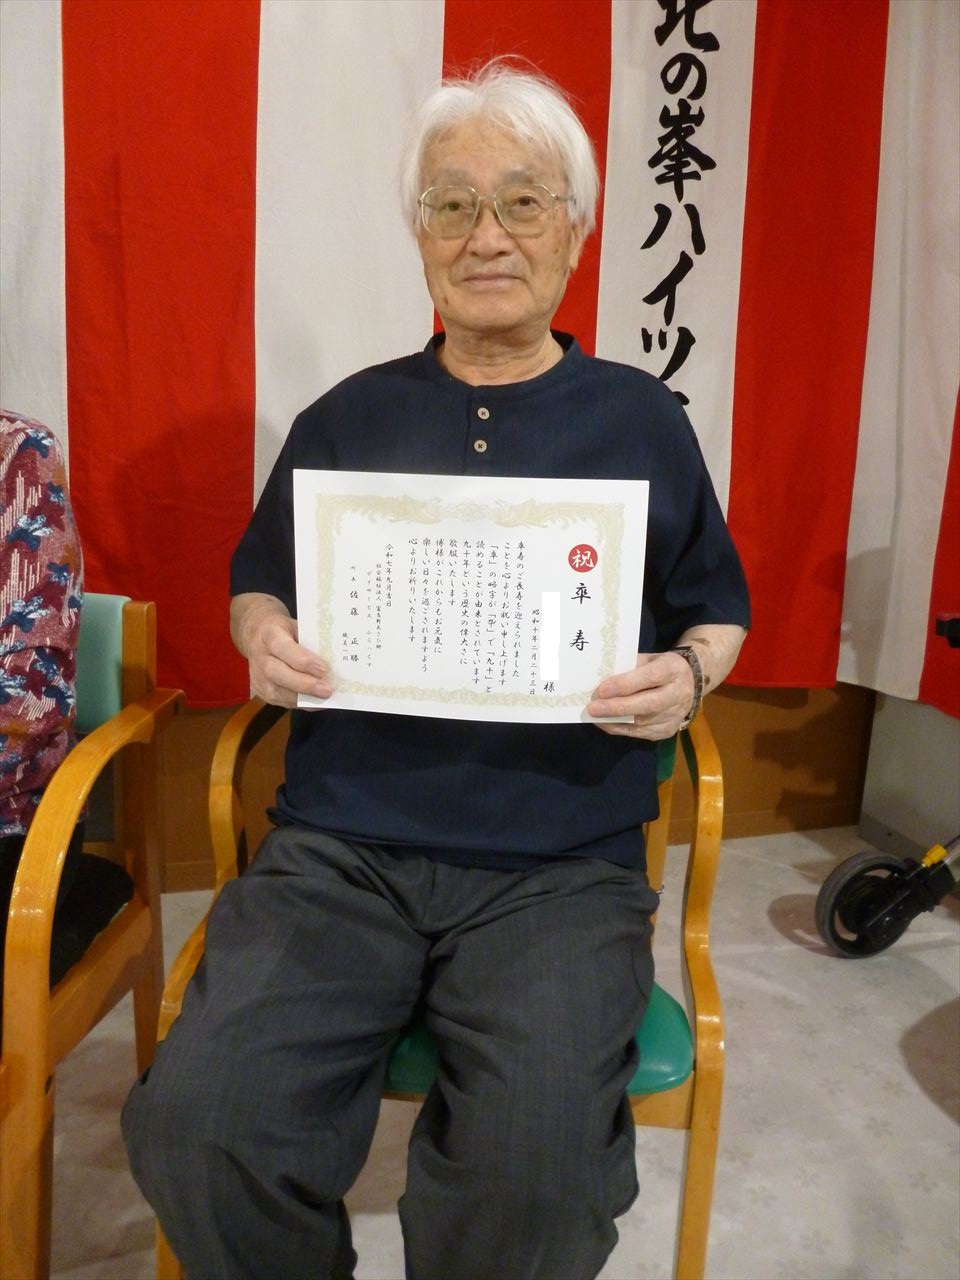 北の峯ハイツ
祝
卒寿
昭和十年二月二十三日
様
卒寿のご長寿を迎えられました
ことを心よりお祝い申し上げます
「卒」の略字が「卆」で「九十」と
読めることが由来とされています
九十年という歴史の偉大さに
敬服いたします
博様がこれからもお元気に
楽しい日々を過ごされますよう
心よりお祈りいたします
令和七年九月吉日
社会福祉法人 富良野あさひ郷
デイサービス ふらっくす
所長 佐藤 正勝
職員一同